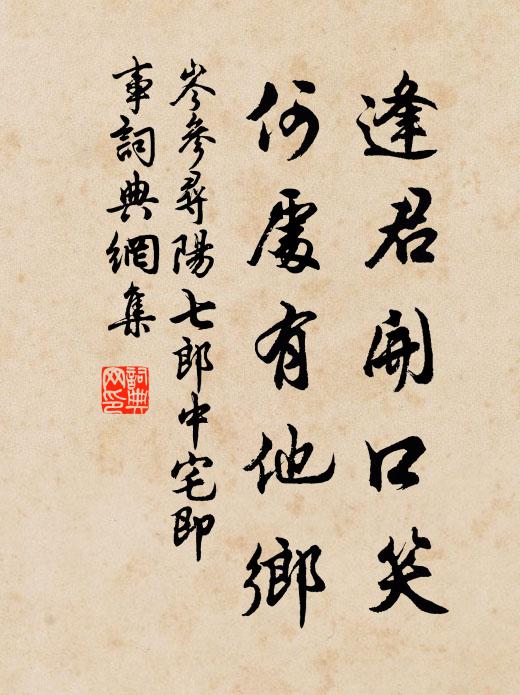 逢君開口笑
何處有他鄉
岑參尋陽七郎中宅即
事詞典網集
詞典
網印